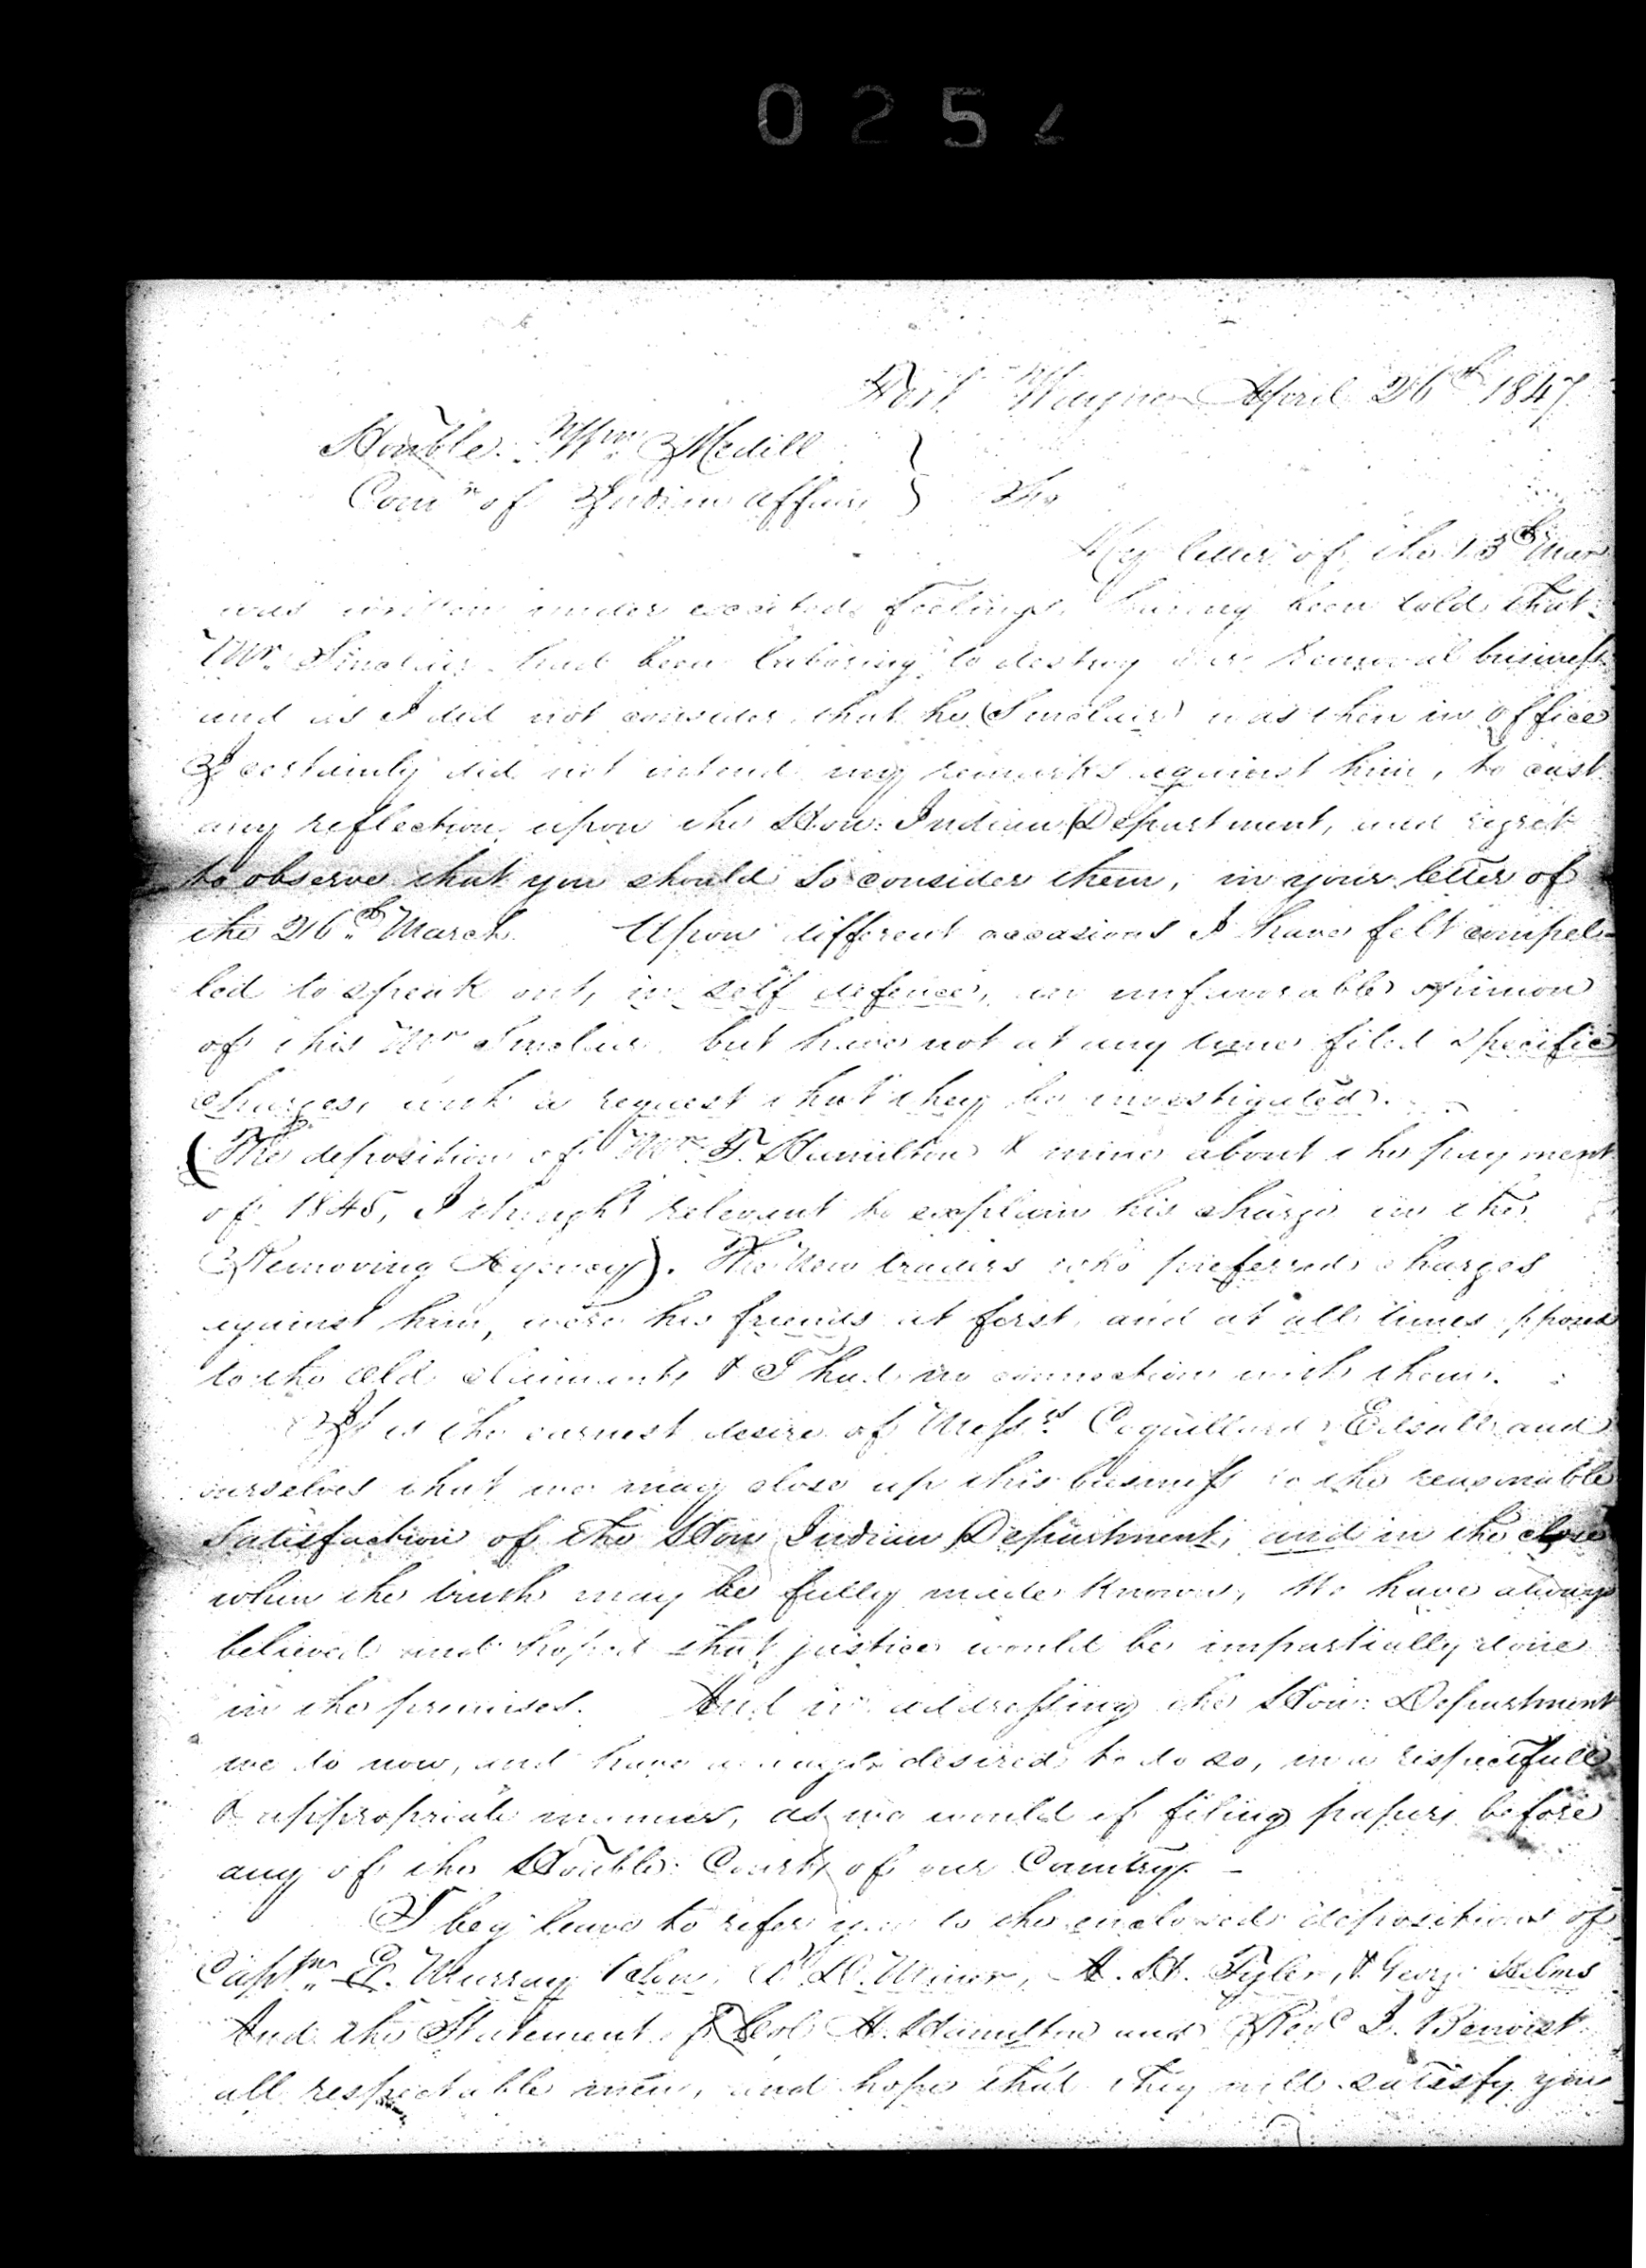 0 2 5
Fort Wayne April 26th 1847
Honble. Wm. Medill
Comr. of Indian Affairs } Sir
My letter of the 13th Mar
was written under excited feelings, having been told that
Mr. Sinclair had been laboring to destroy our removal business
and as I did not consider that he (Sinclair) was then in office
I certainly did not intend my remarks against him, to cast
any reflection upon the Hon: Indian Department, and regret
to observe that you should so consider them, in your letter of
the 26th March. Upon different occasions I have felt compel-
led to speak out, in self defence, an unfavorable opinion
of this Mr Sinclair but have not at any time filed specific
charges, with a request that they be investigated.
(The deposition of Mr. T. Hamilton & mine about the payment
of 1845, I thought relevant to explain his charge in the
Removing Agency). The New traders who preferred charges
against him, were his friends at first and at all times opposed
to the old claimants & I had no connection with them.
It is the earnest desire of Messrs. Coquillard, Edsall and
ourselves that we may close up this business to the reasonable
satisfaction of the Hon Indian Department, and in the close
when the truth may be fully made known, We have always
believed and hoped that justice would be impartially done
in the premises. And in addressing the Hon: Department
we do now, and have always desired to do so, in a respectfull
& appropriate manner, as we would if filing papers before
any of the Honble: Courts of our Country. -
I beg leave to refer you to the enclosed depositions of
Captn. E. Murray D. Minor, A. H. Tyler, & George Helms
And the Statement of Col A. Hamilton and Revd J. Benoist
all respectable men, and hope that they will satisfy you